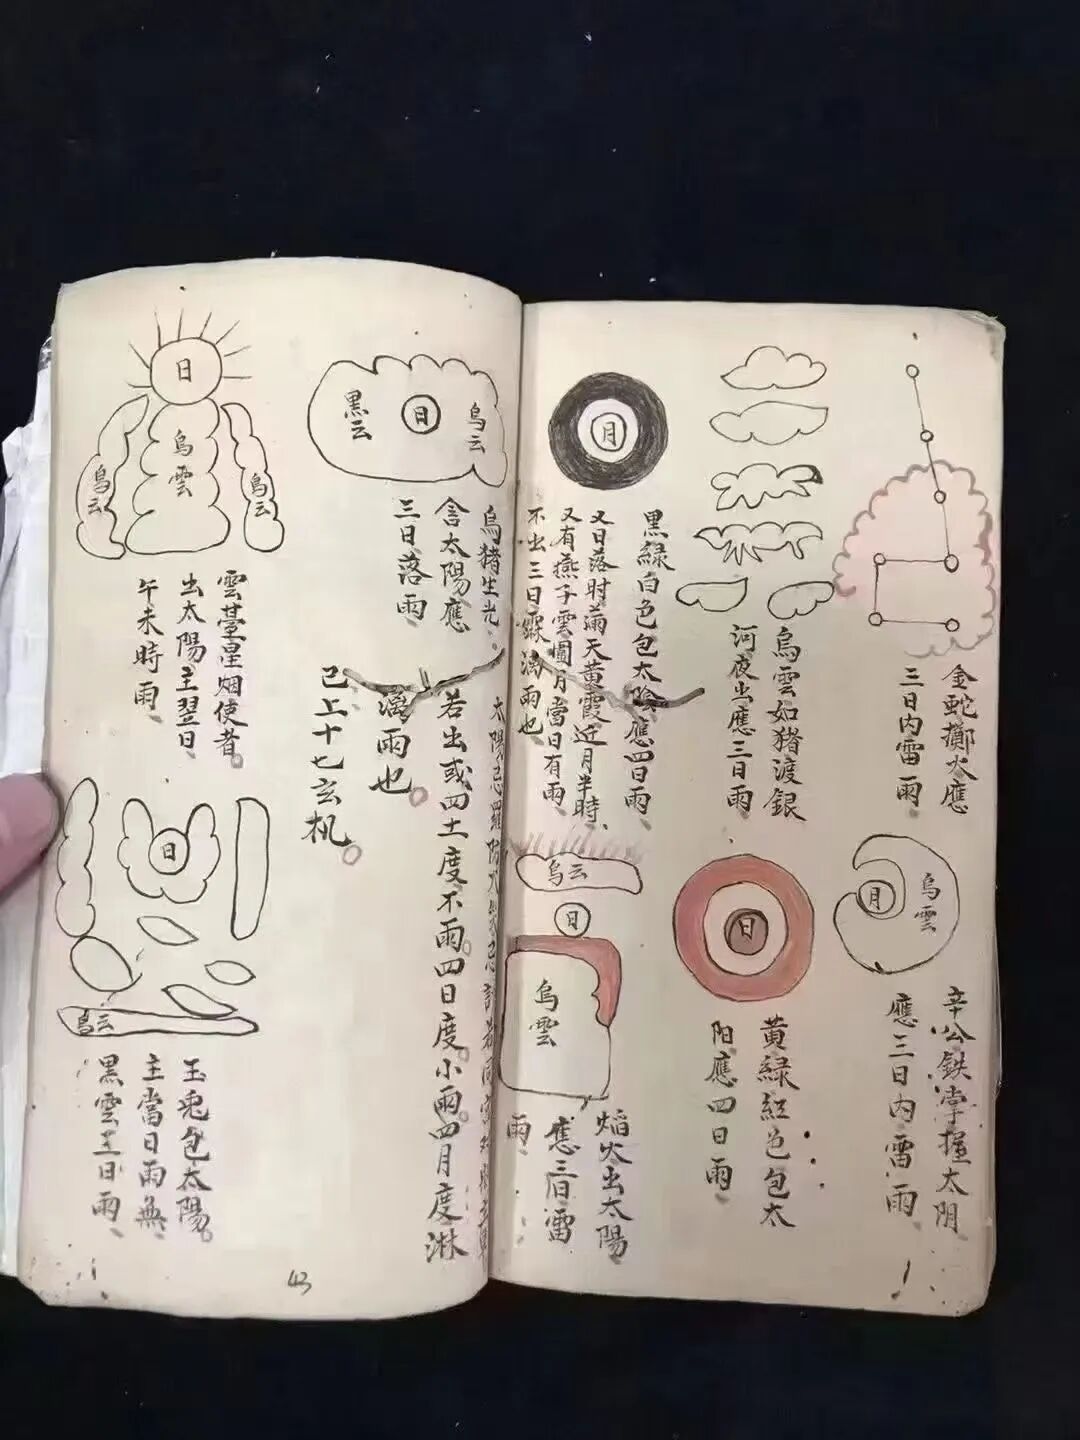 金蛇擲火應
三日內雷雨
烏雲如猪渡銀
河夜出應三日雨
月
黑緑白色包太陰應四日雨
又日落时滿天黄霞近月半時
又有燕子雲圍月當日有雨
不出三日霖漓雨也
月
烏雲
辛公鉄掌握太阴
應三日内雷雨
日
黄緑紅色包太
阳應四日雨
烏云
日
烏雲
焰火出太陽
應三日雷
雨
黑云
日
烏云
烏猪生光
含太陽應
三日落雨
若出或四土度不雨四日度小雨四月度淋
漓雨也
已上十七玄机
日
烏雲
烏云
烏云
雲臺星烟使者
出太陽主翌日
午未時雨
日
烏云
玉兎包太陽
主當日雨無
黑雲主日雨
43